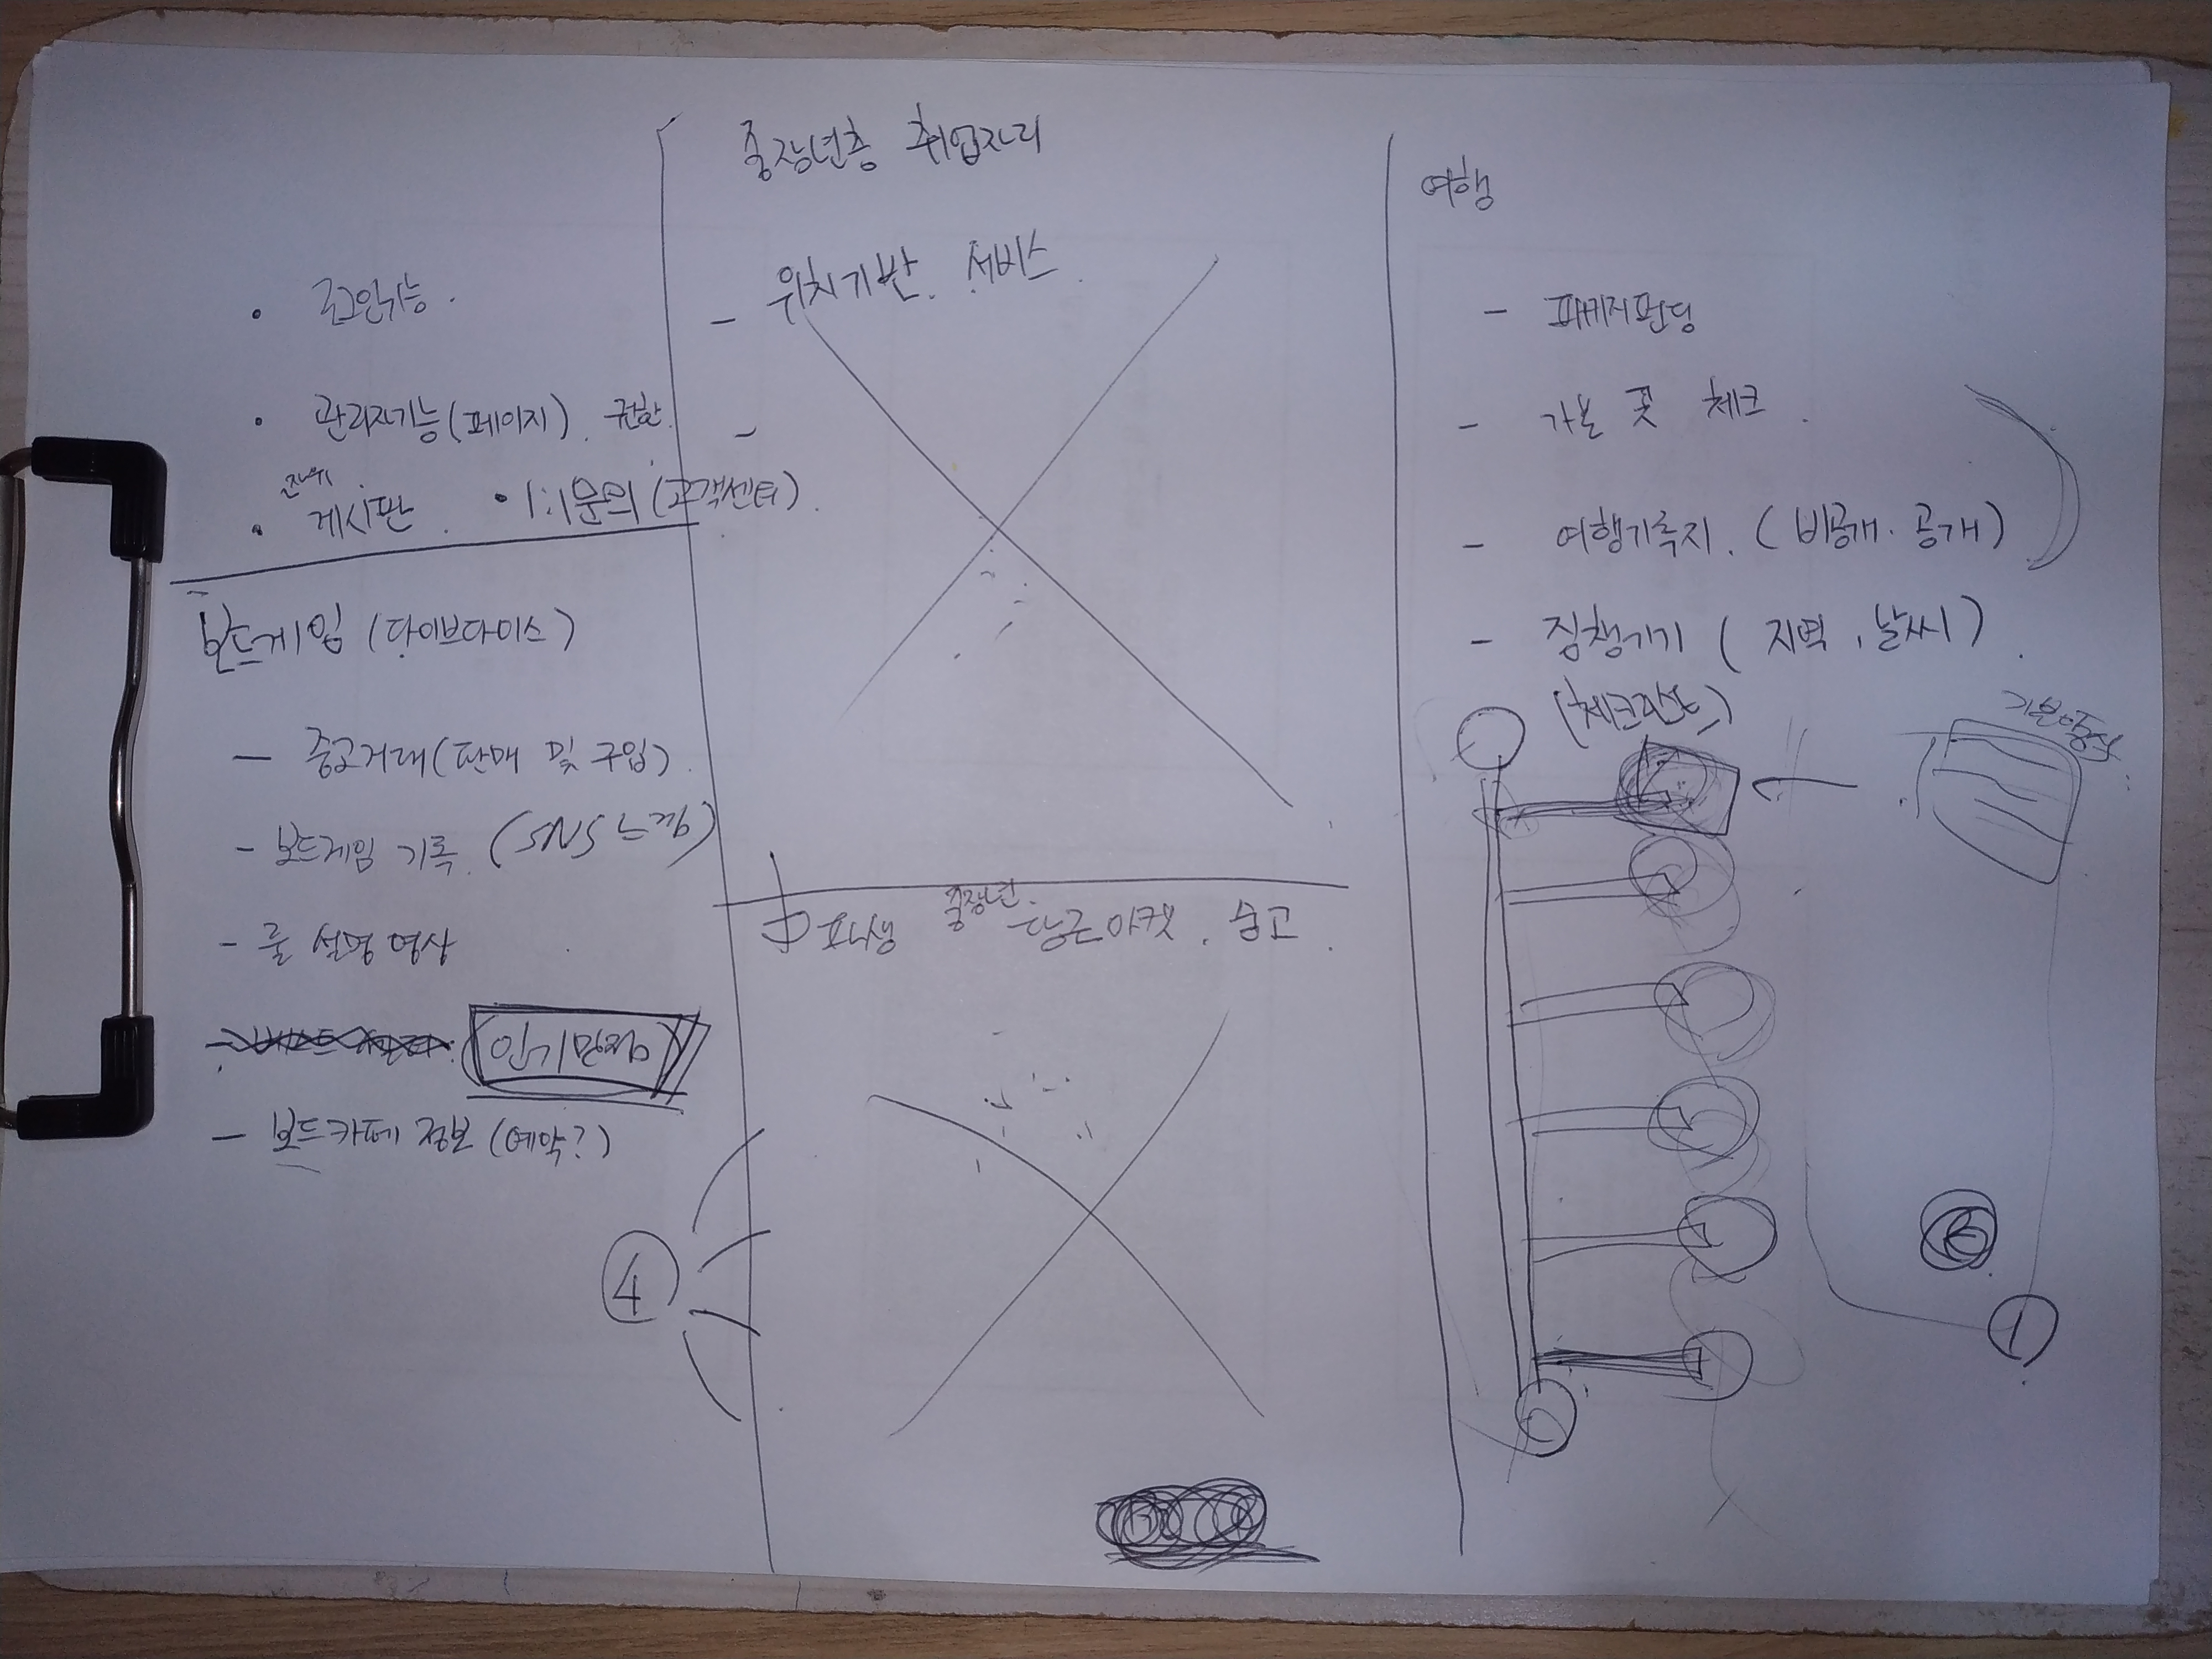 • 로그인기능.
• 관리자기능(페이지). 권한.
• 게시판. • 1:1문의 (고객센터).
보드게임 (다이브다이스)
- 중고거래(판매 및 구입).
- 보드게임 기록. (SNS 느낌)
- 룰 설명 영상
- 보드카페 정보 (예약?)
④
중장년층 취업자리
- 위치기반. 서비스.
-
중장년.
당근마켓. 숨고.
여행
- 패키지펀딩
- 가본 곳 체크.
- 여행기록지. (비공개. 공개)
- 짐챙기기 (지역, 날씨).
(체크리스트)
기본양식
①